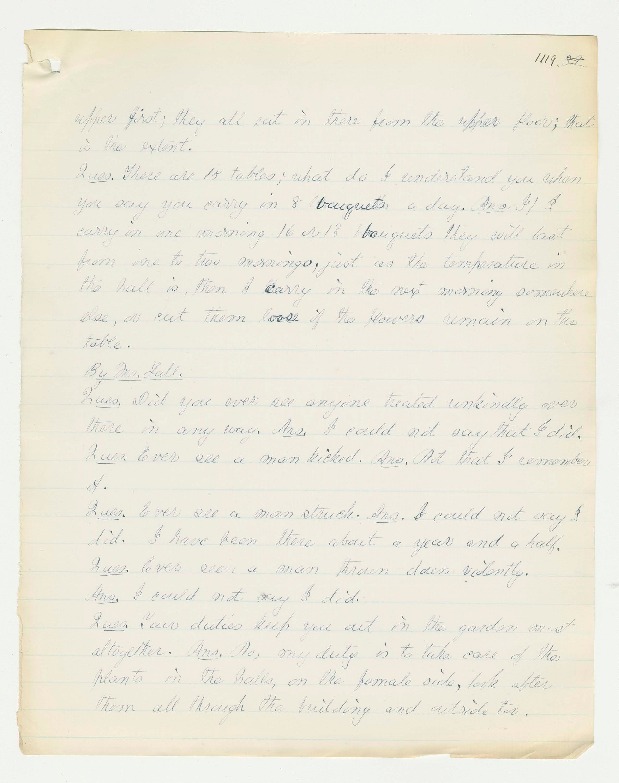 1119.
upper first; they all eat in there from the upper floor; that
is the extent.
Ques. There are 18 tables; what do I understand you when
you say you carry in 8 bouquets a day. Ans. If I
carry in one morning 16 or 18 bouquets they will last
from one to two mornings, just as the temperature in
the hall is, then I carry in the next morning somewhere
else, or cut them loose if the flowers remain on the
table.
By Mr. Gall.
Ques. Did you ever see anyone treated unkindly over
there in any way. Ans. I could not say that I did.
Ques. Ever see a man kicked. Ans. Not that I remember
of.
Ques. Ever see a man struck. Ans. I could not say I
did. I have been there about a year and a half.
Ques. Ever see a man thrown down violently.
Ans. I could not say I did.
Ques. Your duties keep you out in the garden most
altogether. Ans. No, my duty is to take care of the
plants in the halls, on the female side, look after
them all through the building and outside too.